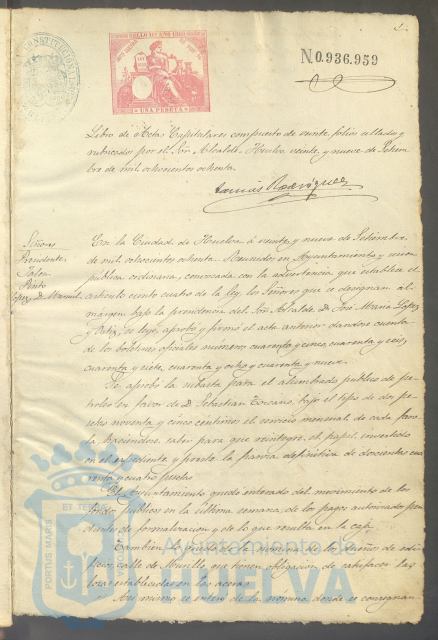 SELLO 11º AÑO 1880
UNA PESETA
N 0.936.959
Libro de Actas Capitulares compuesto de veinte folios sellados y
rubricados por el Sor Alcalde. Huelva veinte y nueve de Setiem
bre de mil ochocientos ochenta.
Tomás Rodríguez
Señores
Presidente
López D. Manuel
En la Ciudad de Huelva á veinte y nueve de Setiembre
de mil ochocientos ochenta. Reunidos en Ayuntamiento y sesion
publica ordinaria, convocada con la advertencia que establece el
articulo ciento cuatro de la ley, los Señores que se designan al
margen bajo la presidencia del Sor Alcalde D. José Maria López
y Ortiz, se leyó, aprobó y firmó el acta anterior dandose cuenta
de los boletines oficiales números cuarenta y cinco, cuarenta y seis,
cuarenta y siete, cuarenta y ocho y cuarenta y nueve.
Se aprobó la subasta para el alumbrado público de pe
troleo en favor de D. Sebastian Toscano, bajo el tipo de dos pe
setas noventa y cinco centimos el servicio mensual de cada faro
la haciendose saber para que reintegre el papel invertido
en el expediente y preste la fianza definitiva de doscientas cua
renta y cuatro pesetas.
El Ayuntamiento quedó enterado del movimiento de los
fondos publicos en la ultima semana, de los pagos autorizados pen
dientes de formalizacion y de lo que resulta en la caja.
Tambien quedó de la nomina de los dueños de edi
ficios calle de Monillo que tienen obligacion de satisfacer las
losas establecidas en las aceras.
Asi mismo se enteró de la nomina donde se consignan
PORTUS MARIS
ET TERRAE
Ayuntamiento de
HUELVA